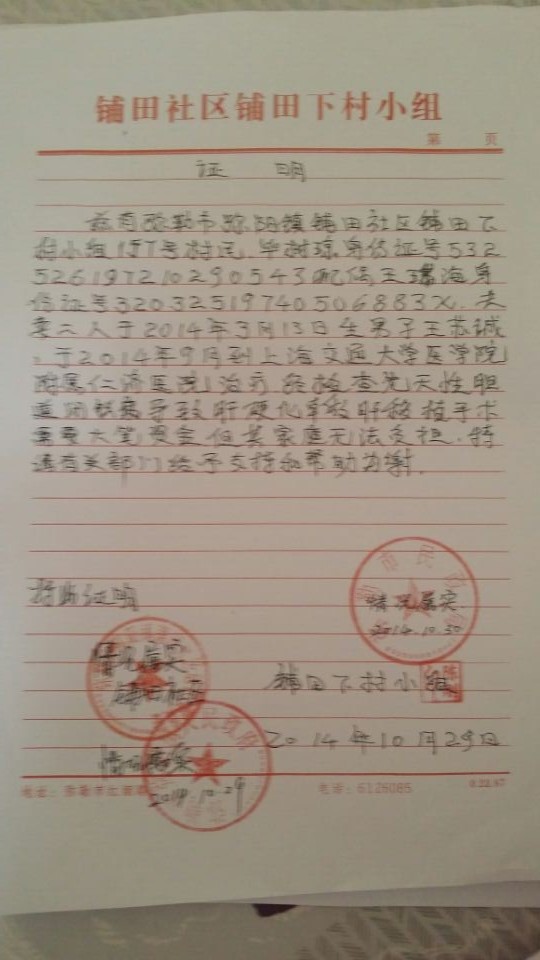 铺田社区铺田下村小组
第 页
证 明
兹有弥勒市弥阳镇铺田社区铺田下
村小组157号村民，毕树琼身份证号532
526197210290543配偶王璨海身
份证号32032519740506883X．夫
妻二人于2014年3月13日生男子王苏诚
，于2014年9月到上海交通大学医学院
附属仁济医院治疗，经检查先天性胆
道闭锁病导致肝硬化肝移植手术
需要大笔资金但其家庭无法负担．特
请有关部门给予支持和帮助为谢．
特此证明
情况属实
2014.10.30
情况属实
铺田社区
铺田下村小组
2014年10月29日
情况属实
2014.10.29
电话：6126085